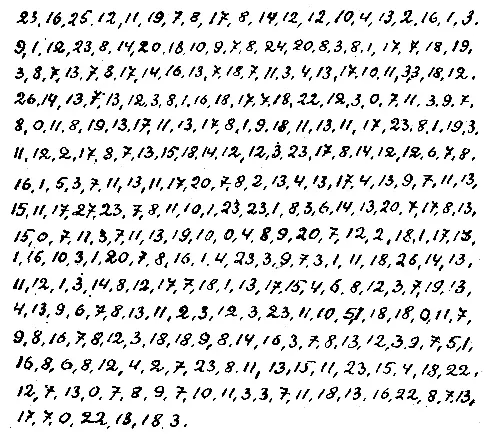 23,16,25,12,11,19,7,8,17,8,14,12,12,10,4,13,2,16,1,3,
9,1,12,23,8,14,20,18,10,9,7,8,24,20,8,3,8,1,17,7,18,19,
3,8,7,13,7,8,17,14,16,13,7,18,7,11,3,4,13,17,10,11,33,18,12,
26,14,13,7,13,12,3,8,1,16,18,17,7,18,22,12,3,0,7,11,3,9,7,
8,0,11,8,19,13,17,11,13,17,8,1,9,18,11,13,11,17,23,8,1,19,3,
11,12,2,17,8,7,13,15,18,14,12,12,3,23,17,8,14,12,12,6,7,8,
16,1,5,3,7,11,13,11,17,20,7,8,2,13,4,13,17,4,13,9,7,11,13,
15,11,17,27,23,7,8,11,10,1,23,23,1,8,3,6,14,13,20,7,17,8,13,
15,0,7,11,3,7,11,13,19,10,0,4,8,9,20,7,12,2,18,1,17,18,
1,16,10,3,1,20,7,8,16,1,4,23,3,9,7,3,1,11,18,26,14,13,
11,12,1,3,14,8,12,17,7,18,1,13,17,15,4,6,8,12,3,7,19,13,
4,13,9,6,7,8,13,11,2,3,12,3,23,11,10,51,18,18,0,11,7,
9,8,16,7,8,12,3,18,18,9,8,14,16,3,7,8,13,12,3,9,7,5,1,
16,8,6,8,12,4,2,7,23,8,11,13,15,11,23,15,4,18,22,
12,7,13,0,7,8,9,7,10,11,3,3,7,11,18,13,16,22,8,7,13,
17,7,0,22,18,18,3.